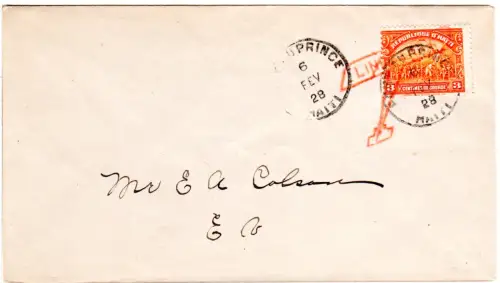 PRINCE
6
FEV
28
HAITI
REPUBLIQUE D'HAITI
3 3
CENTIMES DE GOURDE
28
HAITI
Mr E A Colson
E V